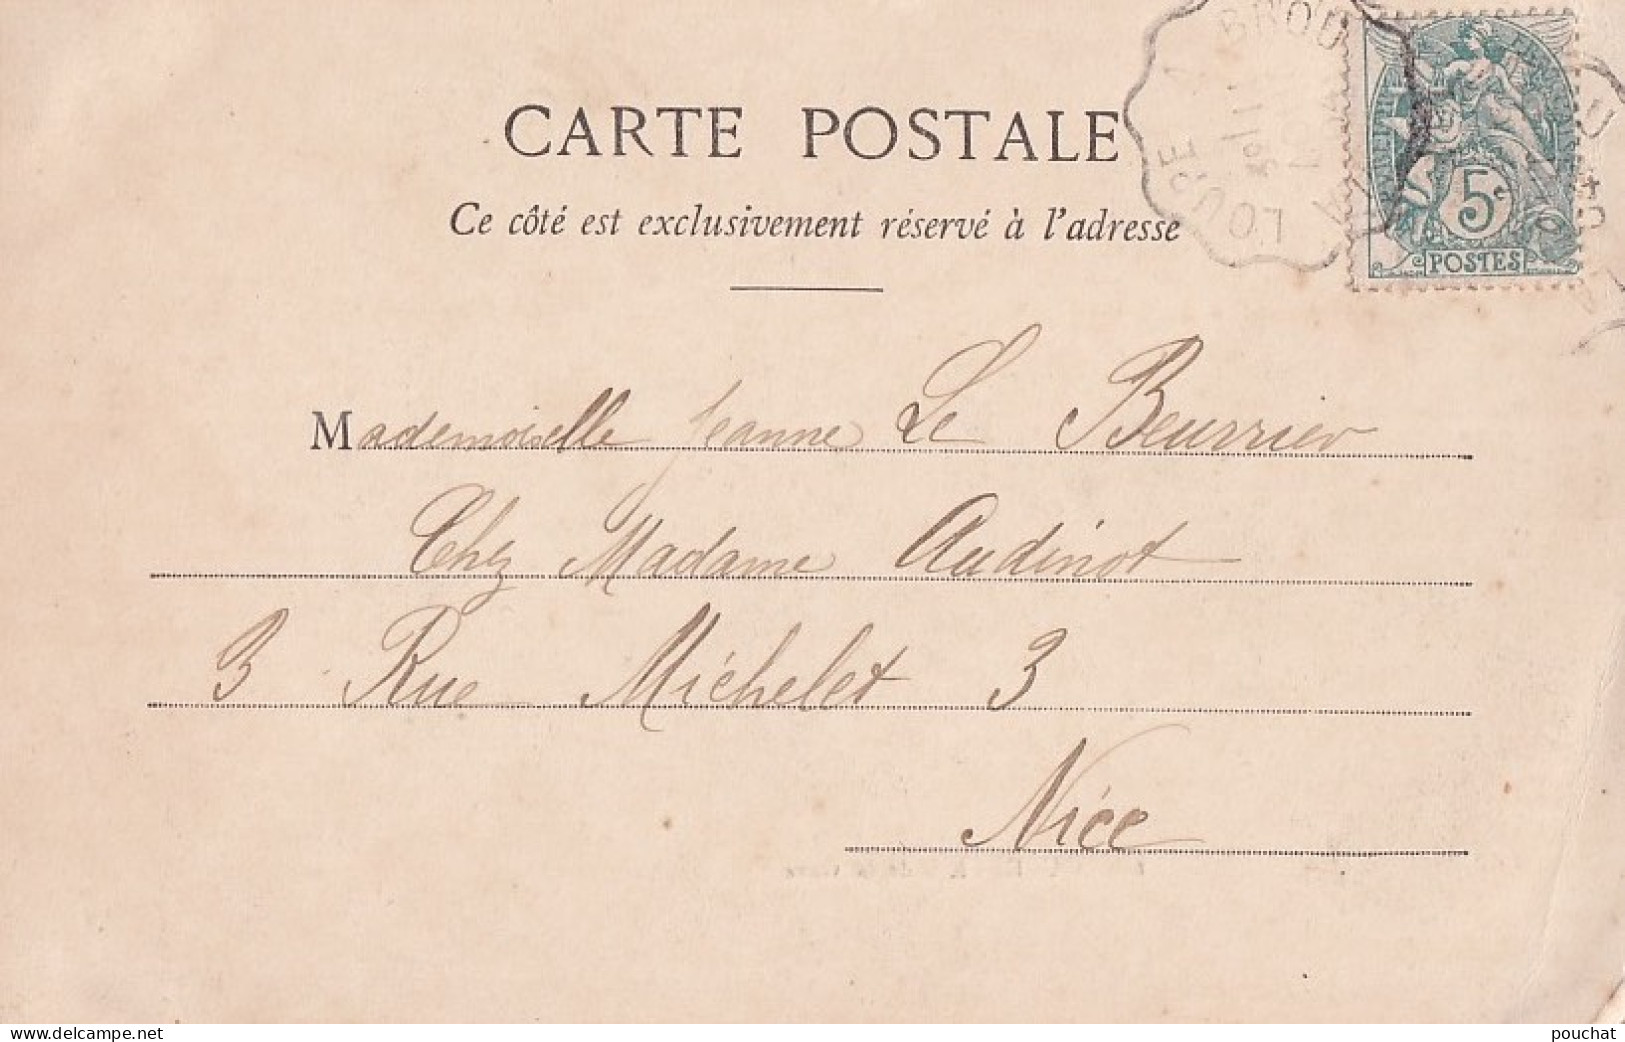 CARTE POSTALE
Ce côté est exclusivement réservé à l'adresse
LOUPE A BROU
5c
POSTES
Mademoiselle Jeanne Le Beurrier
Chez Madame Audinot
3 Rue Michelet 3
Nice
www.delcampe.net
pouchat